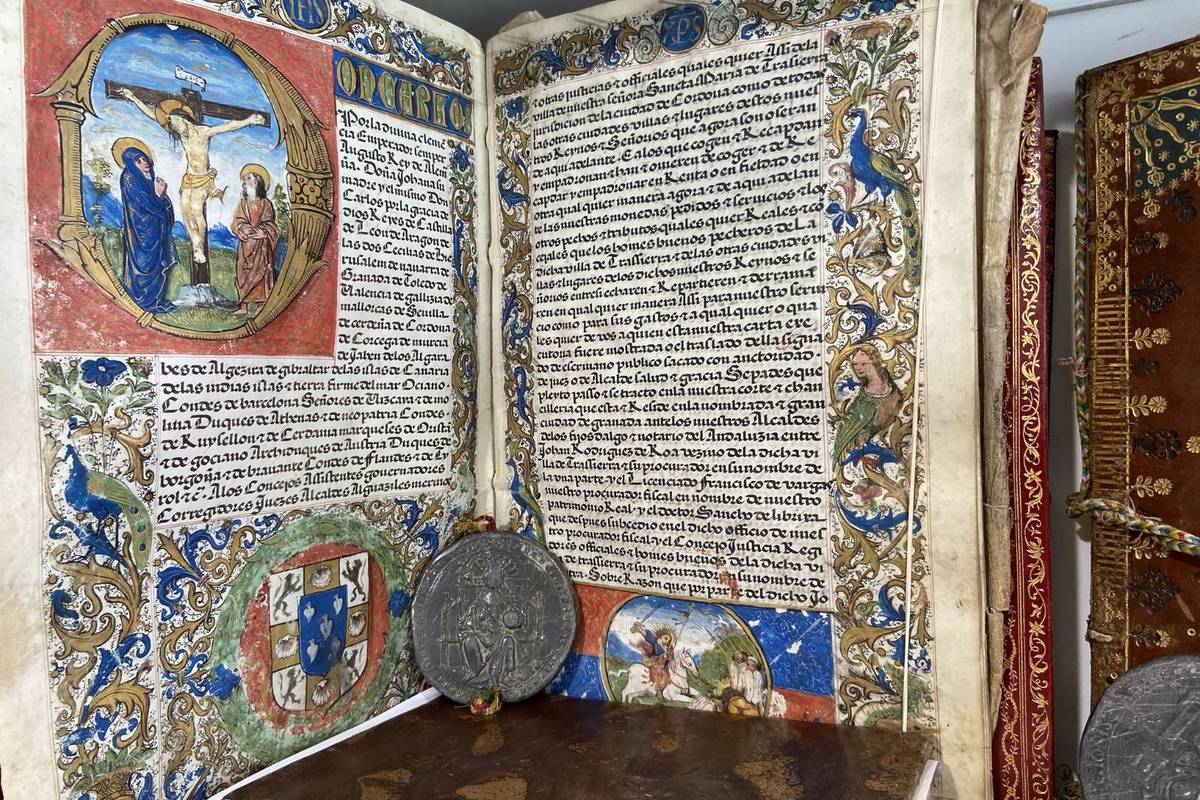 IHS
ON CARLO
Por la diuina clemē
cia Emperador semper
Augusto Rey de Alem̄
ña. Doña Johana su
madre y el mismo Don
Carlos por la gracia de
dios Reyes de Castilla
de Leon de Aragon de
las dos Cecilias de Jhe
rusalem de nauarra de
Granada de Toledo de
Valencia de gallizia de
mallorcas de Seuilla
de cerdeña de Cordoua
de Corcega de murcia
de Jahen de los Algara
bes de Algezira de gibraltar de las islas de Canaria
de las indias islas & tierra firme del mar Oçiano
Condes de barcelona Señores de Vizcaya & de mo
lina Duques de Athenas & de neopatria Condes
de Ruysellon & de Cerdania marqueses de Oristā
& de goçiano Archiduques de Austria Duques de
borgoña & de brauante Condes de Flandes & de Ty
rol &c. A los Concejos Assistentes gouernadores
Corregidores Juezes Alcaldes Alguaziles merinos
XPS
& otras justicias & officiales quales quier Assi de la
villa de nuestra señora Sancta Maria de Trasierra
jurisdicion de la ciudad de Cordoua como de todas
las otras ciudades villas & lugares destos nues
tros Reynos & Señorios que agora son o seran
de aqui adelante. E a los que cogen & Recabdan
y empadronan & han o ouieren de coger & de Re
capdar y empadronar en Renta o en fieldad o en
otra qual quier manera agora & de aqui adelan
te las nuestras monedas pedidos & seruicios & los
otros pechos & tributos quales quier Reales & co
çejales que los homes buenos pecheros de La
dicha villa de Trassierra & de las otras ciudades vi
llas & lugares de los dichos nuestros Reynos & se
ñorios entre si echaren & Repartieren & derramā
en qual quier manera Assi para nuestro serui
cio como para sus gastos & a qual quier o qua
les quier de vos a quien esta nuestra carta exe
cutoria fuere mostrada o el traslado della signa
do de escriuano publico sacado con auctoridad
de juez o de Alcalde salud & gracia Sepades que
pleyto passo & se tracto en la nuestra corte & chan
cilleria que esta & Reside en la nombrada & gran
ciudad de granada ante los nuestros Alcaldes
de los fijos dalgo & notario del Andaluzia entre
Johan Rodriguez de Roa vezino de la dicha vi
lla de Trassierra & su procurador en su nombre de
la vna parte y el Licenciado Francisco de vargas
nuestro procurador fiscal en nombre de nuestro
patrimonio Real y el doctor Sancho de librixa
que despues subcedio en el dicho officio de nues
tro procurador fiscal y el Concejo Justicia Regi
dores officiales & homes buenos de la dicha vi
de trassierra & su procurador en su nombre de
Sobre Razon que por parte del dicho Jo